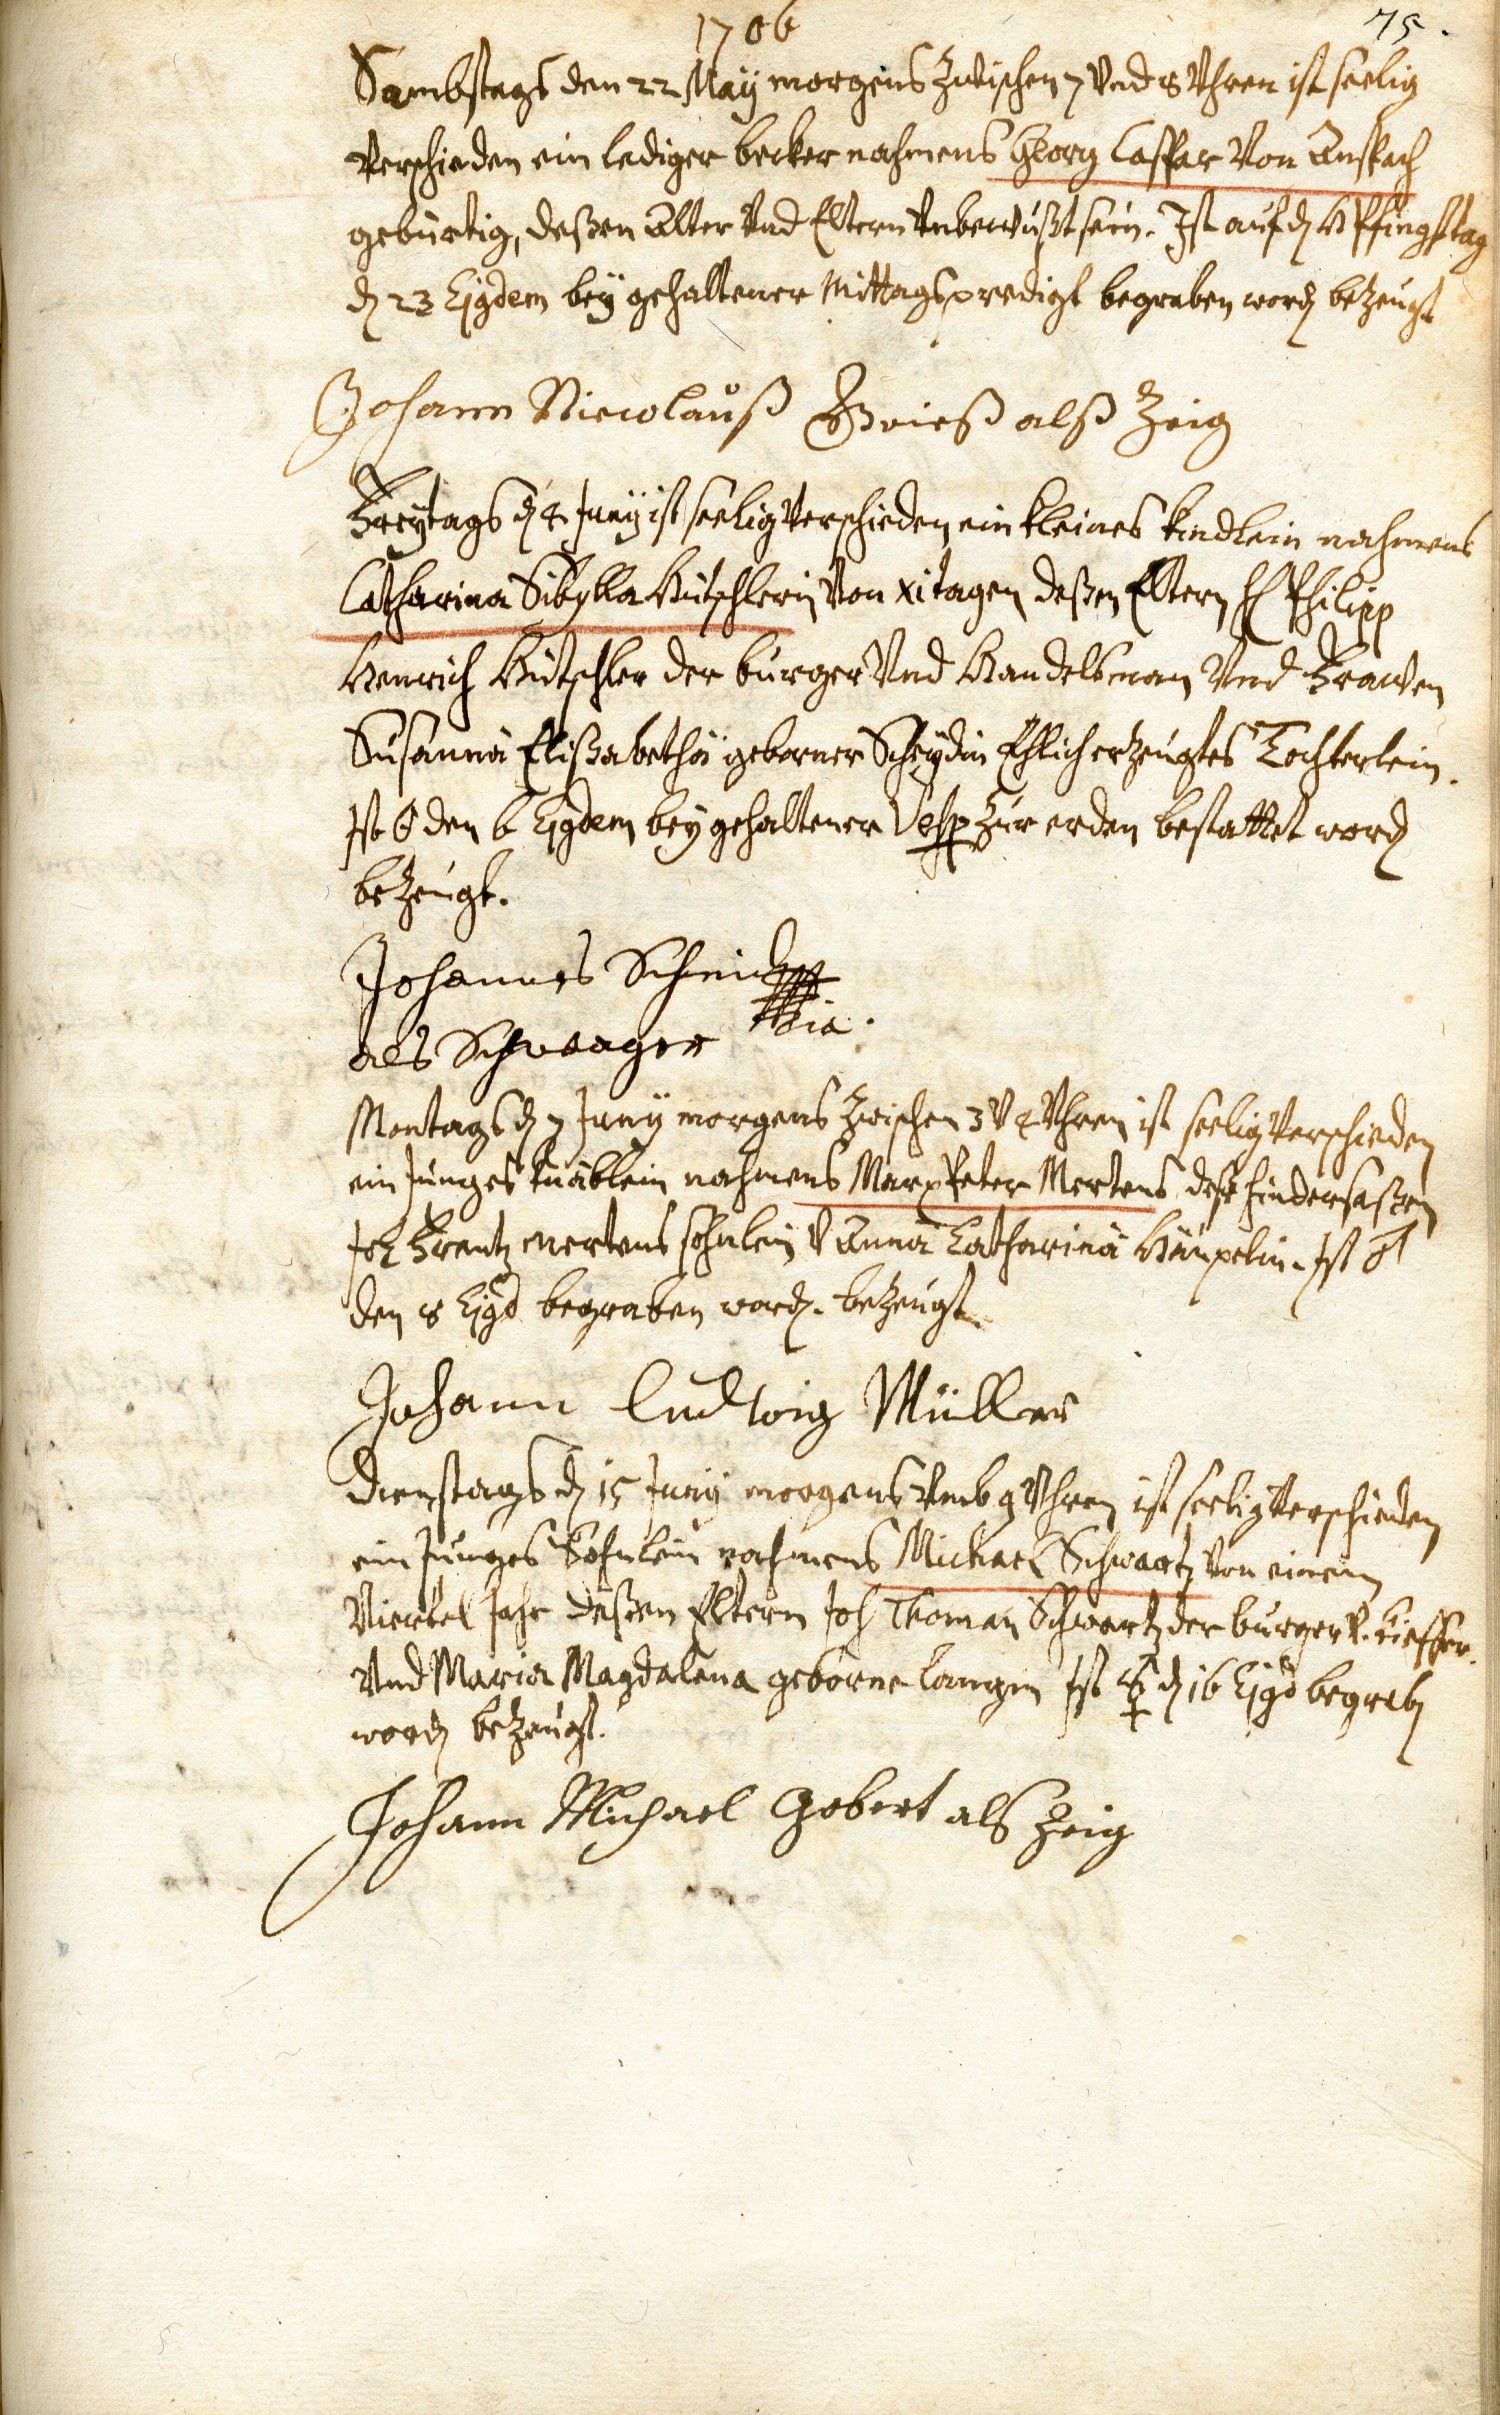 1706
75.
Sambstags den 22 Maÿ morgens zwischen 7 Vnd 8 Vhren ist seelig
verschieden ein lediger becker nahmens Georg Caspar Von Anspach
gebürtig, deßen Alter Vnd Eltern Vnbewußt sein. Ist auf dẽ H Pfingsttag
d 23 Ejgdem beÿ gehaltener Mittagspredigt begraben word bezeugt
Johann Nicolauß Grieß alß Zeig
Freÿtags d 4 Junÿ ist seelig Verschieden ein kleines kindlein nahmens
Catharina Sibylla Hütschlerin Von xi tagen deßen Eltern H Philipp
Henrich Hütschler der burger Vnd Handelsman Vnd Frawen
Susanna Elißabetha geborner Scheÿdin Ehlich erzeugtes Tochterlein.
Ist den 6 Ejgdem beÿ gehaltener Vesp zur erden bestattet word
bezeugt.
Johannes Schmidt
als Schwager
Montags d 7 Junÿ morgens zwischen 3 V 4 Vhren ist seelig Verschieden
ein Junges knäblein nahmens Marx Peter Mertens deß hindersaßen
Joh Frantz Mertens söhnlein V Anna Catharina Häupelin. Ist ♂
den 8 Ejgd begraben word. bezeugt
Johann Ludwig Müller
Dienstags d 15 Junÿ morgens Vmb 9 Vhren ist seelig Verschieden
ein Junges Söhnlein nahmens Michael Schwartz Von einem
Viertel Jahr deßen Eltern Joh Thoman Schwartz der burger V. kieffer.
Vnd Maria Magdalena geborne Langin Ist ☿ d 16 Ejgd begrab
word bezeugt.
Johann Michael Gobert als Zeig